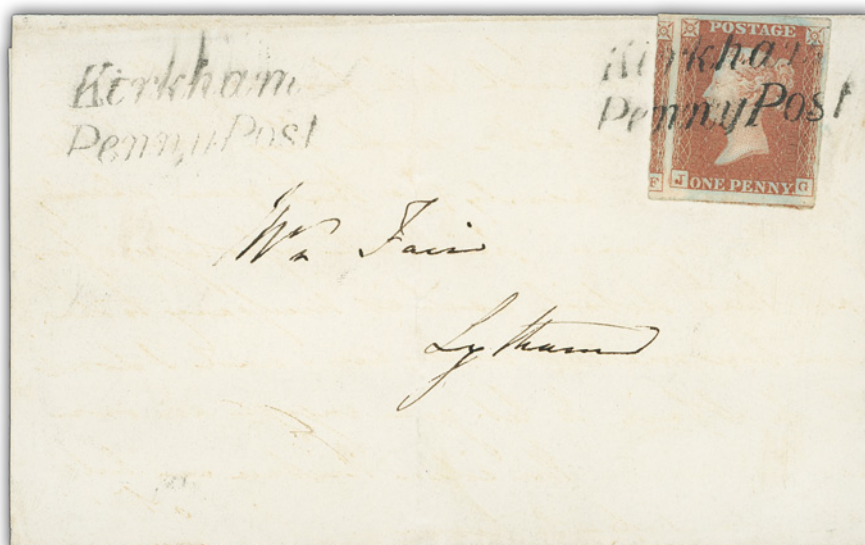 Kirkham
Penny Post
Kirkham
Penny Post
POSTAGE
F J ONE PENNY G
Wm Fair
Lytham